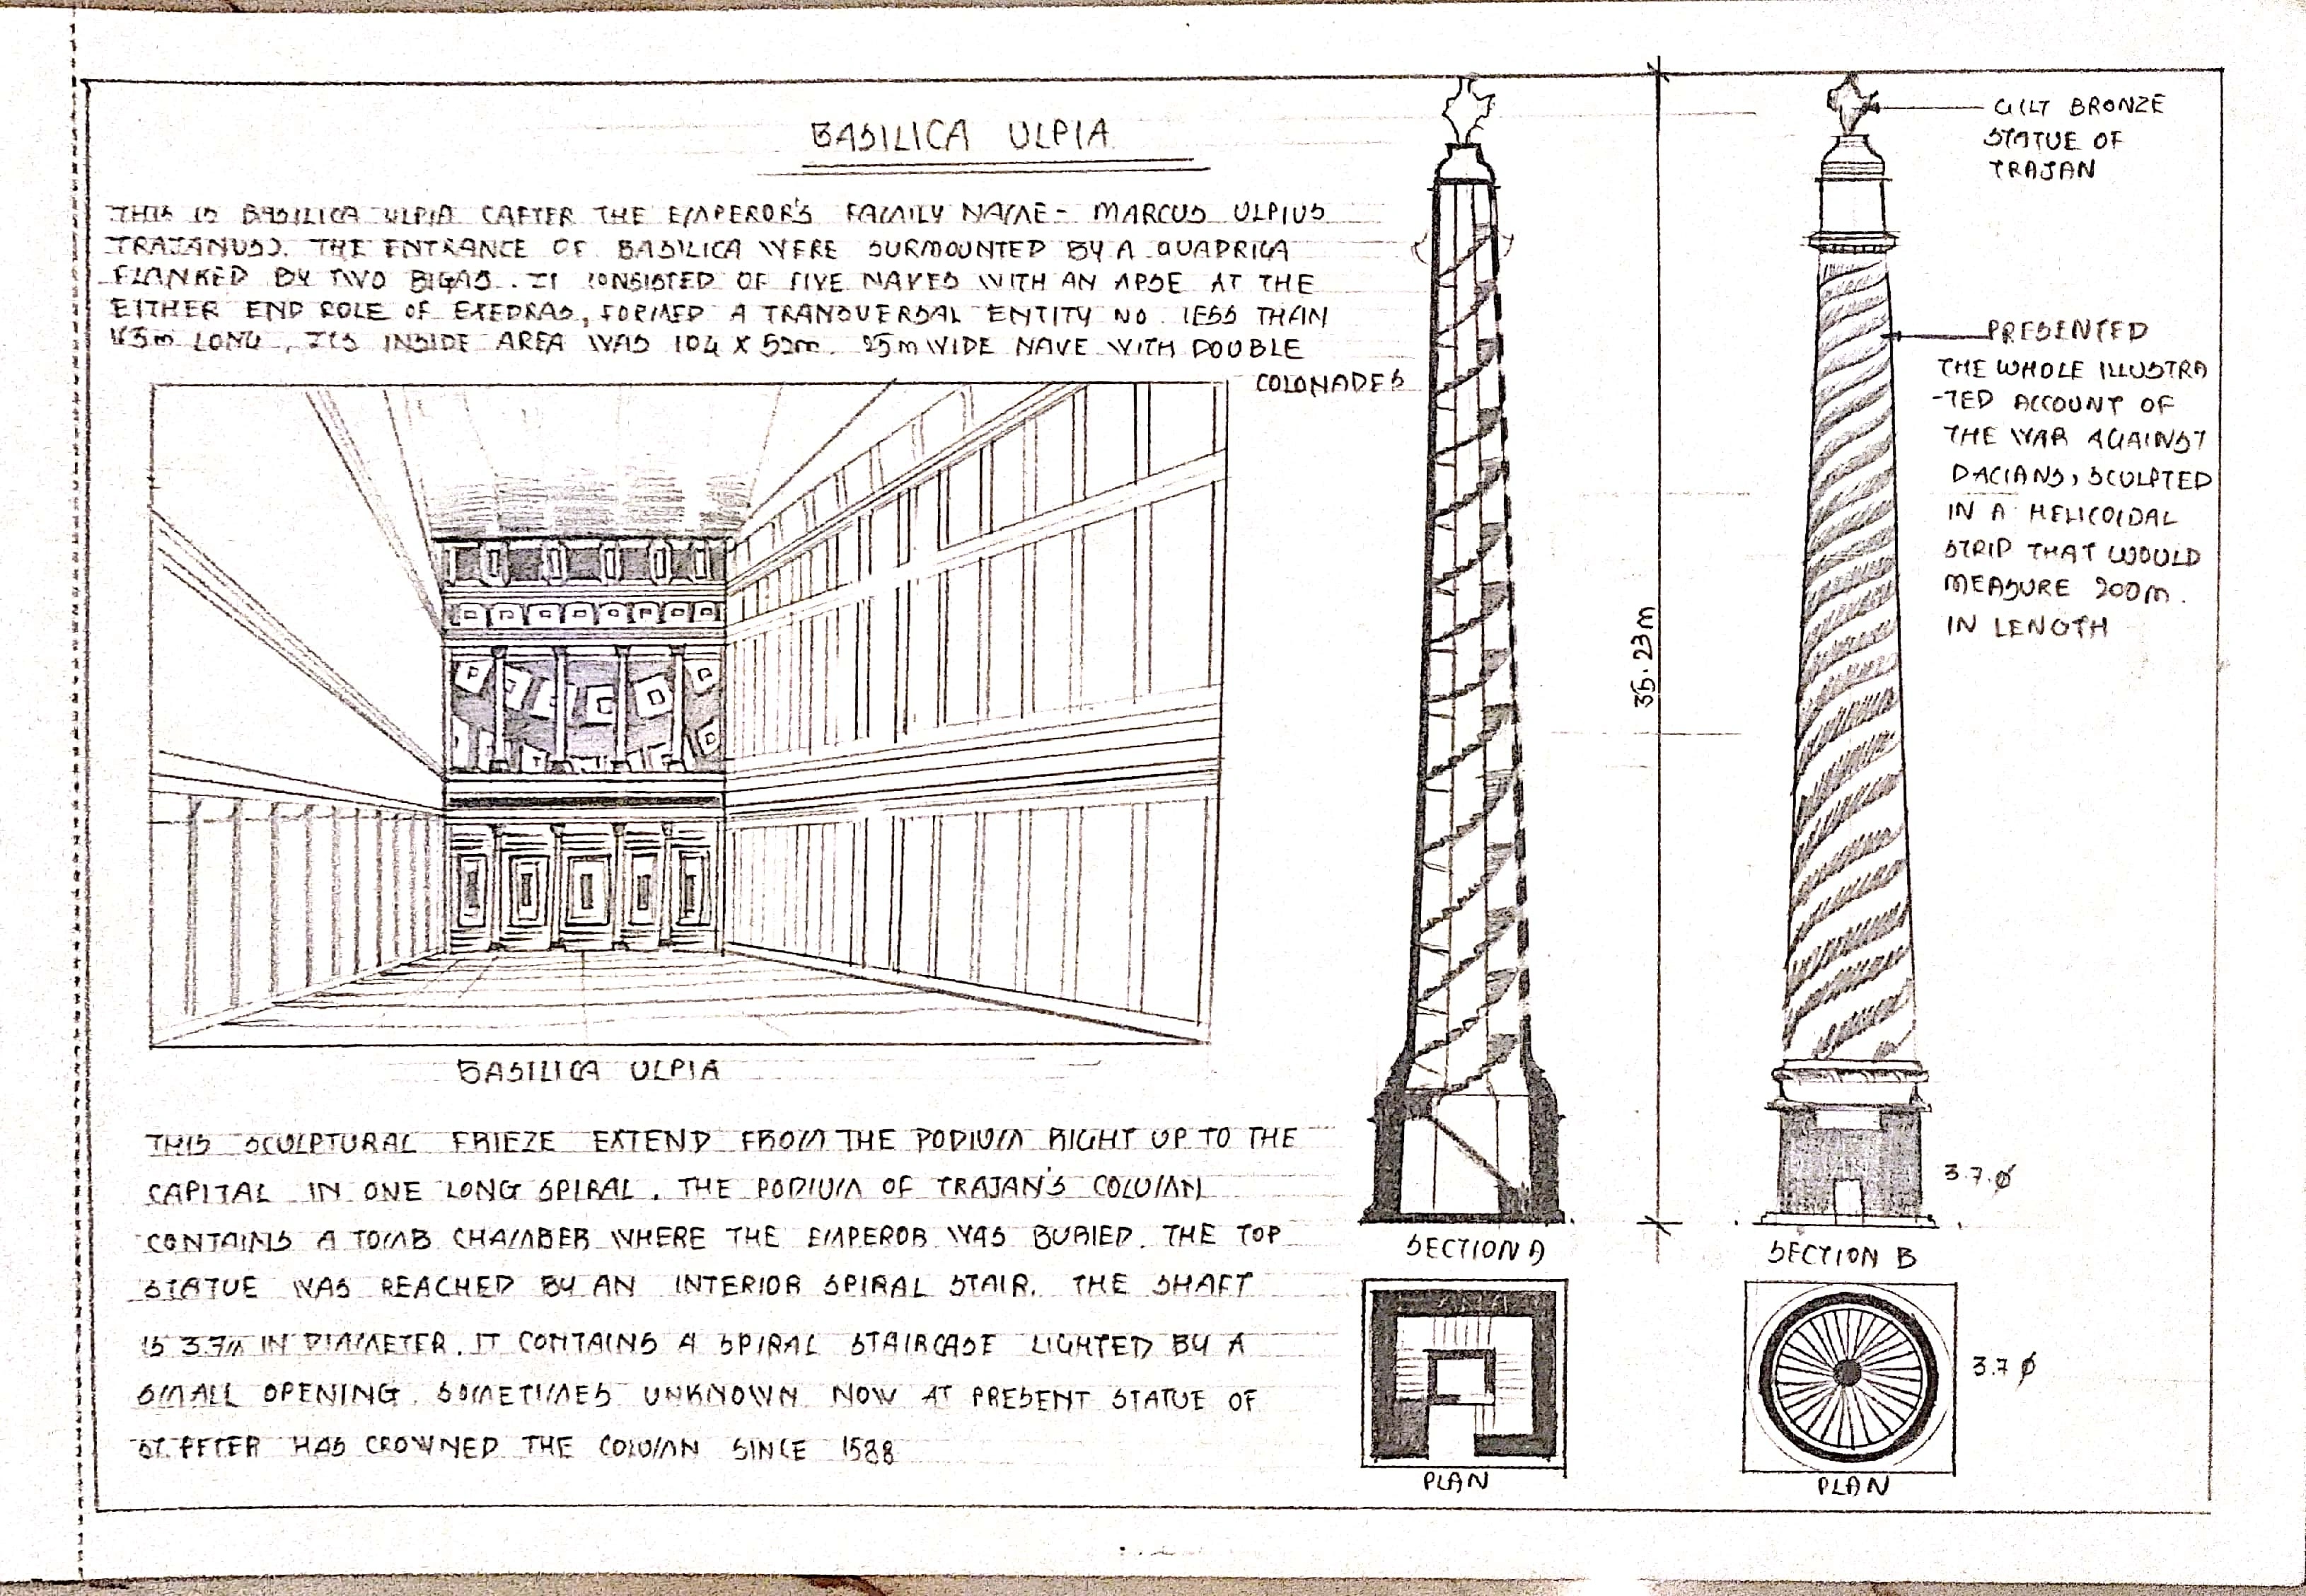 BASILICA ULPIA
THIS IS BASILICA ULPIA (AFTER THE EMPEROR'S FAMILY NAME - MARCUS ULPIUS
TRAJANUS). THE ENTRANCE OF BASILICA WERE SURMOUNTED BY A QUADRIGA
FLANKED BY TWO BIGAS. IT CONSISTED OF FIVE NAVES WITH AN APSE AT THE
EITHER END ROLE OF EXEDRAS, FORMED A TRANSVERSAL ENTITY NO LESS THAN
LONG, ITS INSIDE AREA WAS 104 X 52m. 25m WIDE NAVE WITH DOUBLE
COLONADES
BASILICA ULPIA
THIS SCULPTURAL FRIEZE EXTEND FROM THE PODIUM RIGHT UP TO THE
CAPITAL IN ONE LONG SPIRAL. THE PODIUM OF TRAJAN'S COLUMN
CONTAINS A TOMB CHAMBER WHERE THE EMPEROR WAS BURIED. THE TOP
STATUE WAS REACHED BY AN INTERIOR SPIRAL STAIR. THE SHAFT
IS 3.7m IN DIAMETER. IT CONTAINS A SPIRAL STAIRCASE LIGHTED BY A
SMALL OPENING. SOMETIMES UNKNOWN NOW AT PRESENT STATUE OF
ST. PETER HAS CROWNED THE COLUMN SINCE 1588
SECTION A
PLAN
35.23m
GILT BRONZE
STATUE OF
TRAJAN
PRESENTED
THE WHOLE ILLUSTRA
-TED ACCOUNT OF
THE WAR AGAINST
DACIANS, SCULPTED
IN A HELICOIDAL
STRIP THAT WOULD
MEASURE 200m.
IN LENGTH
3.7.Ø
SECTION B
3.7 Ø
PLAN